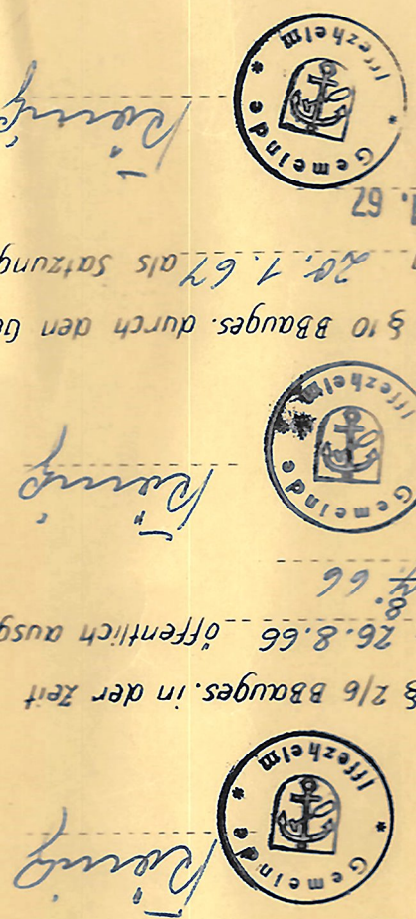 * Gemeinde * Iffezheim
§ 2/6 BBauges. in der Zeit
26.8.66 öffentlich ausg
66
Gemeinde * Iffezheim
§ 10 BBauges. durch den Ge
20.1.67 als Satzung
1. 67
* Gemeinde * Iffezheim